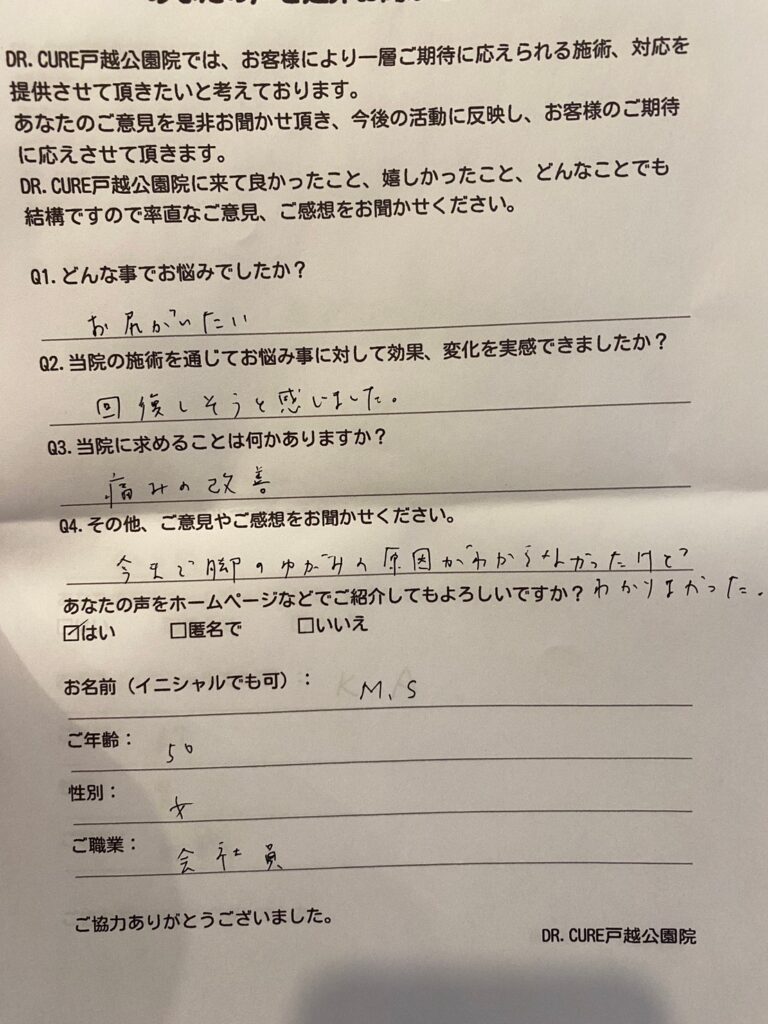 DR. CURE戸越公園院では、お客様により一層ご期待に応えられる施術、対応を
提供させて頂きたいと考えております。
あなたのご意見を是非お聞かせ頂き、今後の活動に反映し、お客様のご期待
に応えさせて頂きます。
DR. CURE戸越公園院に来て良かったこと、嬉しかったこと、どんなことでも
結構ですので率直なご意見、ご感想をお聞かせください。
Q1. どんな事でお悩みでしたか？
お尻がいたい
Q2. 当院の施術を通じてお悩み事に対して効果、変化を実感できましたか？
回復しそうと感じました。
Q3. 当院に求めることは何かありますか？
痛みの改善
Q4. その他、ご意見やご感想をお聞かせください。
今まで脚のゆがみの原因がわからなかったけど
わかりよかった.
あなたの声をホームページなどでご紹介してもよろしいですか？
☑はい □匿名で □いいえ
お名前（イニシャルでも可）： M.S
ご年齢： 50
性別： 女
ご職業： 会社員
ご協力ありがとうございました。
DR. CURE戸越公園院